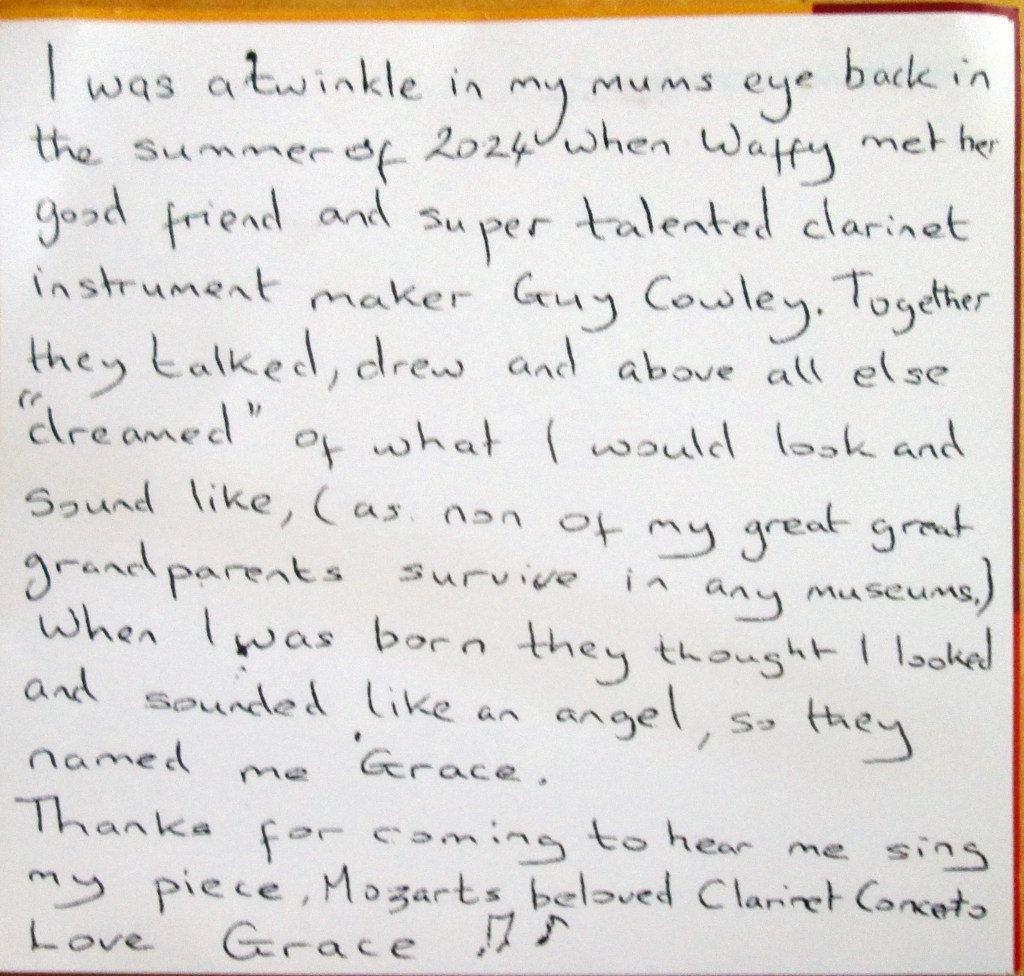 I was a twinkle in my mums eye back in
the summer of 2024 when Waffy met her
good friend and super talented clarinet
instrument maker Guy Cowley. Together
they talked, drew and above all else
"dreamed" of what I would look and
sound like, (as non of my great great
grandparents survive in any museums.)
When I was born they thought I looked
and sounded like an angel, so they
named me Grace.
Thanks for coming to hear me sing
my piece, Mozarts beloved Clarinet Conceto
Love Grace ♫ ♪